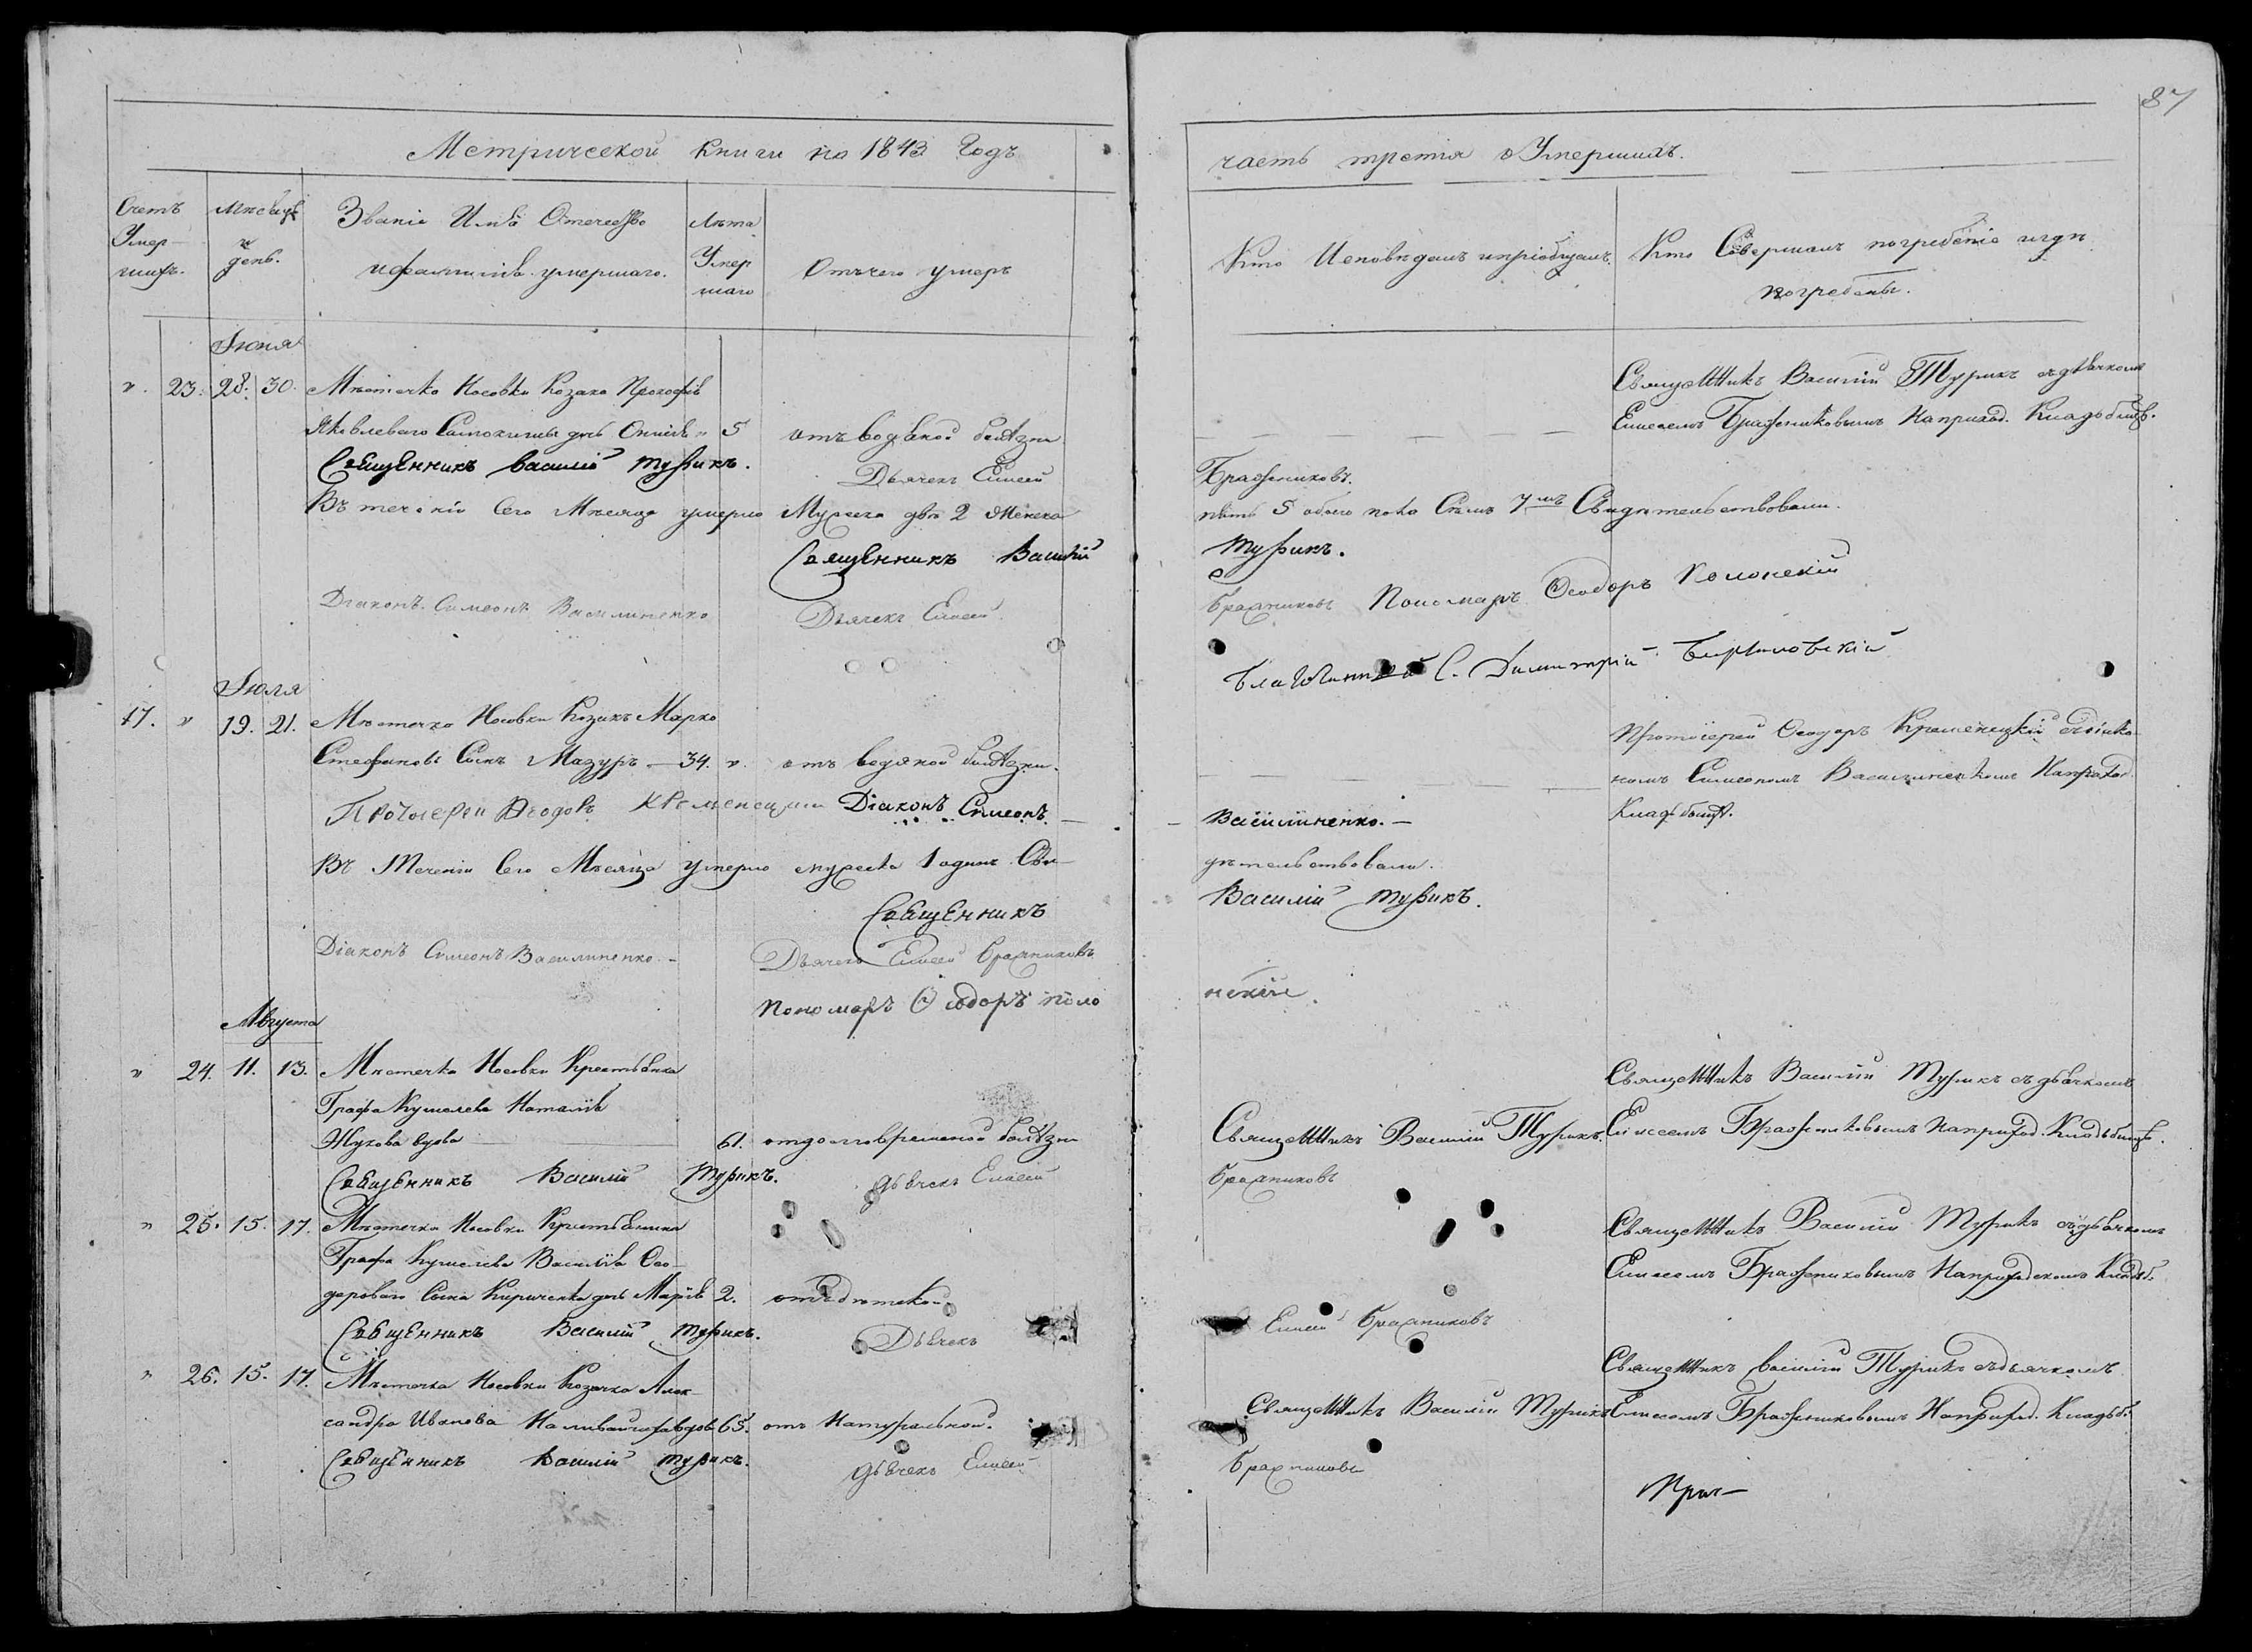 87
Метрической книги на 1843 Годъ
часть третія о Умершихъ.
Счетъ Умер-шихъ.
Мѣсяцъ и день.
Званіе Имѣ Отечество
и фамилія умершаго.
Лѣта Умер шаго
Отъ чего умеръ
Кто Исповѣдалъ и пріобщалъ.
Кто Совершалъ погребеніе и гдѣ
погребены.
Іюня
" 23. 28. 30. Мѣстечка Носовки Козака Прокофія
Яковлеваго дчь 5 отъ водяной болѣзни
Священникъ Василій Турикъ съ дьячкомъ
Елисеемъ Бражниковымъ На приход. Кладбищѣ.
Священникъ Василій Турикъ. Дьячекъ Елисей Бражниковъ.
Въ теченіи Сего Мѣсяца умерло Мужеска два 2 Женска
пять 5 обоего пола Семь 7мъ Свидѣтельствовали.
Священникъ Василій Турикъ.
Діаконъ Симеонъ Василиненко Дьячекъ Елисей
Бражниковъ Пономарь Ѳеодоръ Полонскій
Благочинный С. Димитрій
Іюля
17. " 19. 21. Мѣстечка Носовки Козакъ Марко
Стефановъ Сынъ Мазуръ 34. " отъ водяной болѣзни.
Протоіерей Ѳеодоръ Кременецкій съ діяко-
номъ Симеономъ Василиненкомъ На приход.
Кладбищѣ.
Протоіерей Ѳеодоръ Кременецкій Діаконъ Симеонъ
Василиненко.
Въ Теченіи Сего Мѣсяца умерло мужеска 1 одинъ Сви-
дѣтельствовали.
Священникъ Василій Турикъ.
Діаконъ Симеонъ Василиненко. Дьячекъ Елисей Бражниковъ
Пономарь Ѳеодоръ Поло
нскій.
Августа
" 24. 11. 13. Мѣстечка Носовки Крестьянка
Графа Кушелева Наталія
Жукова вдова 61. от долговременной болѣзни
Священникъ Василій Турикъ.
Священникъ Василій Турикъ съ дьячкомъ
Елисеемъ Бражниковымъ На приход. Кладбищѣ.
Священникъ Василій Турикъ. дьячекъ Елисей
Бражниковъ
" 25. 15. 17. Мѣстечка Носовки Крестьянина
Графа Кушелева Василія Ѳео-
дороваго Сына Кириченка дчь Марія 2. отъ дѣтской.
Священникъ Василій Турикъ съ дьячкомъ
Елисеемъ Бражниковымъ На приходскомъ Кладб.
Священникъ Василій Турикъ. Дьячекъ
Елисей Бражниковъ
" 26. 15. 17. Мѣстечка Носовки Козачка Алек-
сандра Иванова вдова 65. отъ Натуральной.
Священникъ Василій Турикъ
Священникъ Василій Турикъ съ дьячкомъ
Елисеемъ Бражниковымъ На приход. Кладб.
Священникъ Василій Турикъ. дьячекъ Елисей
Бражниковъ